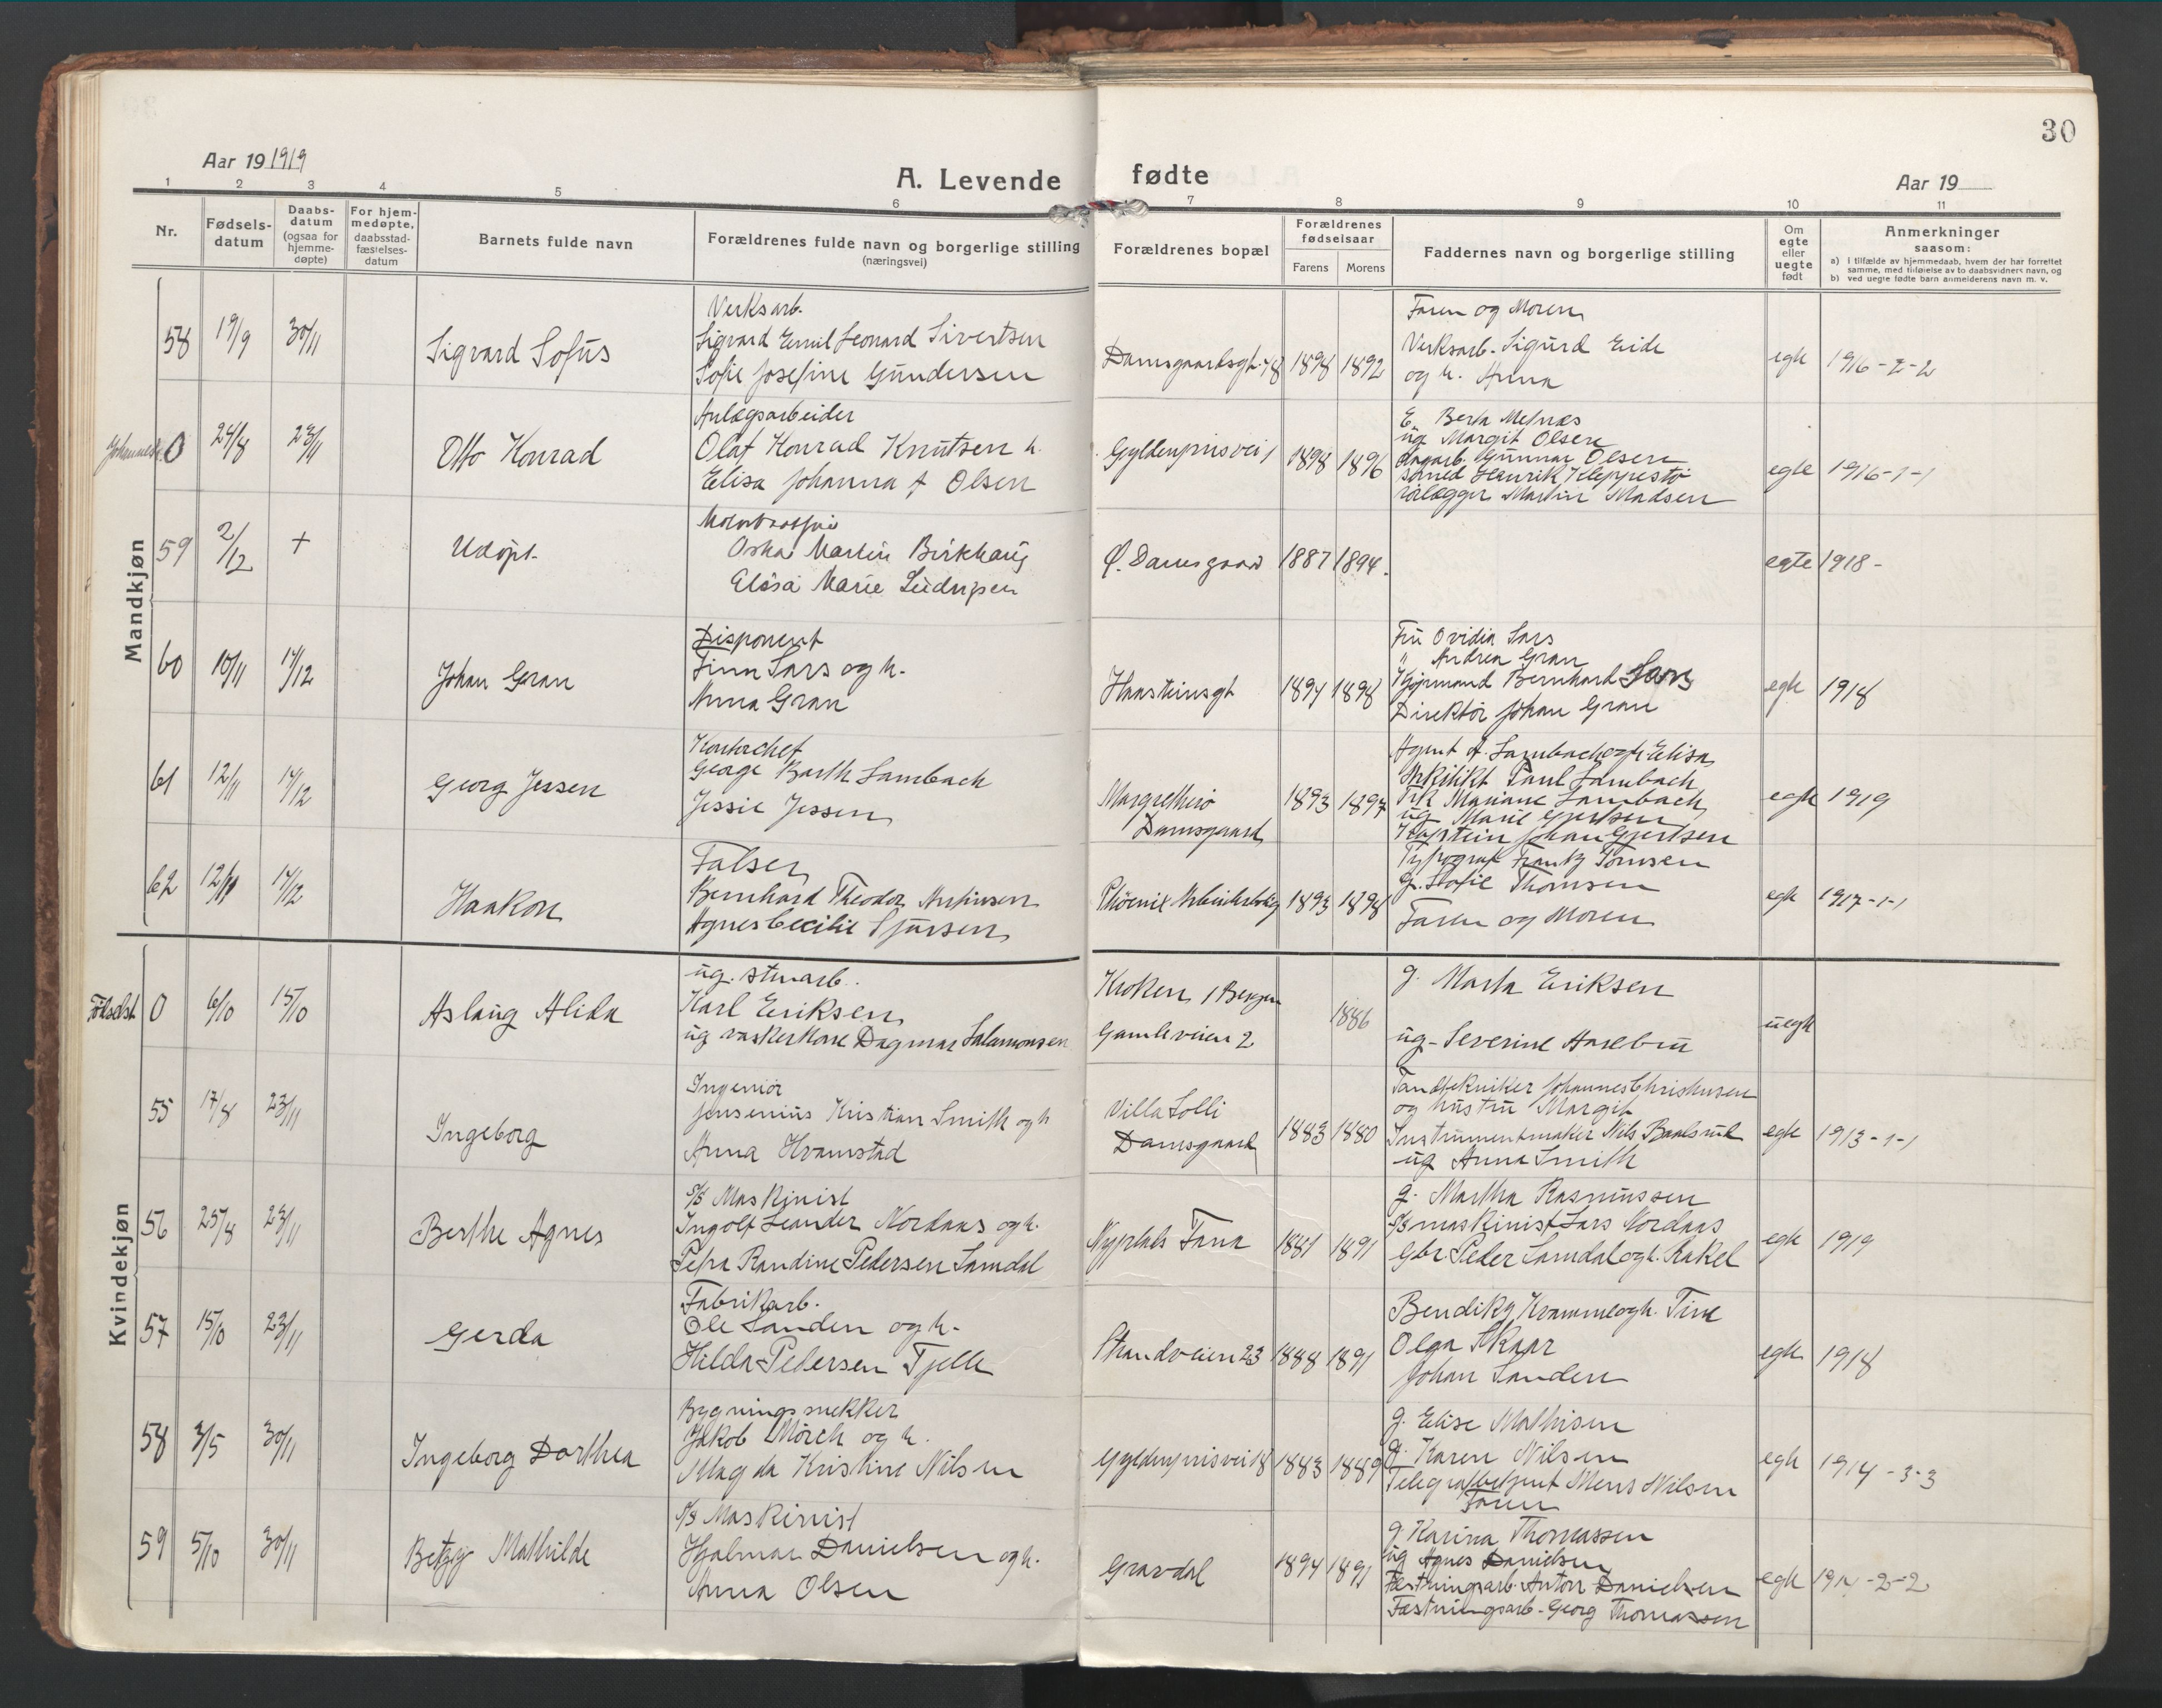 30
Aar 19 1919
A. Levende fødte
Aar 19
1 2 3 4 5 6 7 8 9 10 11
Nr.
Fødsels-
datum
Daabs-
datum
(ogsaa for
hjemme-
døpte)
For hjem-
medøpte,
daabsstad-
fæstelses-
datum
Barnets fulde navn
Forældrenes fulde navn og borgerlige stilling
(næringsvei)
Forældrenes bopæl
Forældrenes
fødselsaar
Farens Morens
Faddernes navn og borgerlige stilling
Om
egte
eller
uegte
født
Anmerkninger
saasom:
a) i tilfælde av hjemmedaab, hvem der har forrettet
samme, med tilføielse av to daabsvidners navn, og
b) ved uegte fødte barn anmelderens navn m. v.
Mandkjøn
58 19/9 30/11
Sigvard Sofus
Verksarb.
Sigvard Emil Leonard Sivertsen
Sofie Josefine Gundersen
Damsgaardsgt. 48
1898 1892
Faren og Moren
Verksarb. Sigurd Eide
og h. Anna
egte
1916-2-2
0 24/8 23/11
Otto Konrad
Anlægsarbeider
Olaf Konrad Knutsen h.
Elisa Johanna f Olsen
Gyldenprisvei 1
1898 1896
E. Berta Melnæs
ug Margit Olsen
Gunnar Olsen
smed Henrik Kleppestø
rørlægger Martin Madsen
egte
1916-1-1
59 2/12 +
Udøpt.
Martin Birkhaug
Elisa Marie
Ø. Damsgaard
1887 1894.
egte
1918-
60 10/11 14/12
Johan Gran
Disponent
Finn Sars og h.
Anna Gran
Haasteinsgt
1894 1898
Fru Ovidia Sars
" Andrea Gran
Kjøpmand Bernhard Sars
Direktør Johan Gran
egte
1918
61 12/11 14/12
Georg Jessen
Kontorchef
George Barth Lambach
Jessie Jessen
Margrethero
Damsgaard
1893 1897
Agent A. Lambach og fr. Elisa
Arkitekt Paul Lambach
Frk Mariane Lambach
ug Marie Gjertsen
Kaptein Johan Gjertsen
egte
1919
62 12/11 14/12
Haakon
Falser
Bernhard Theodor
Agnes Cecilie Sjursen
Phöenix Arbeiderbolig
1893 1898
Typograf Frantz Tomsen
g. Sofie Thomsen
Faren og Moren
egte
1917-1-1
Kvindekjøn
0 6/10 15/10
Aslaug Alida
ug. stuarb.
Karl Eriksen
ug vaskerkone Dagmar Salamonsen
Kroken, 1 Bergen
Gamleveien 2
1886
g. Marta Eriksen
ug. Severine Aarebru
uegte
55 17/8 23/11
Ingeborg
Ingeniør
Jensenius Kristian Smith og h
Anna Hramstad
Villa Solli
Damsgaard
1883 1880
Tandtekniker Johannes Christensen
og hustru Margit
Instrumentmaker Nils Baalsrud
ug Anna Smith
egte
1913-1-1
56 25/8 23/11
Berthe Agnes
S/S Maskinist
Ingolf Leander Nordaas og h.
Petra Randine Pedersen Samdal
Nyplads Fana
1881 1891
g. Martha Rasmussen
S/S maskinist Lars Nordaas
Gbr. Peder Samdal og h. Rakel
egte
1919
57 15/10 23/11
Gerda
Fabrikarb.
Ole Sanden og h.
Hilda Pedersen Tjelle
Strandveien 23
1888 1891
Bendikg Kramme og h. Tine
Olga Skaar
Johan Sanden
egte
1918
58 3/5 30/11
Ingeborg Dorthea
Bygningssnekker
Jakob Mörch og h.
Magda Kristine Nilsen
Gyldenprisvei 18
1883 1889
g. Elise Mathisen
g. Karen Nilsen
Telegrafbetjent Mens Nilsen
Faren
egte
1914-3-3
59 5/10 30/11
Betzy Mathilde
S/S Maskinist
Hjalmar Danielsen og h.
Anna Olsen
Gravdal
1894 1891
g. Karina Thomassen
ug Agnes Danielsen
Fæstningsarb. Anton Danielsen
Fæstningsarb. Georg Thomassen
egte
1914-2-2